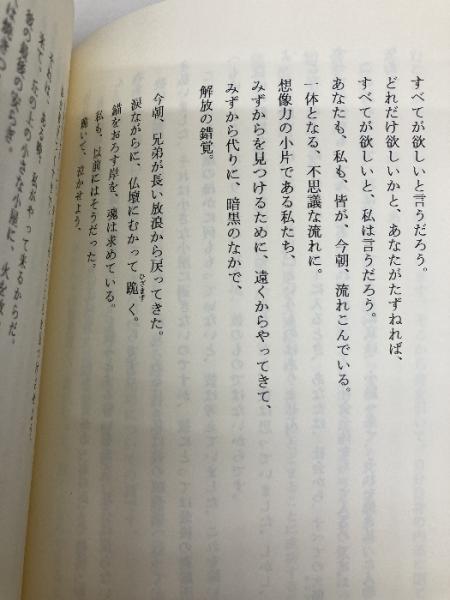 すべてが欲しいと言うだろう。
どれだけ欲しいかと、あなたがたずねれば、
すべてが欲しいと、私は言うだろう。
あなたも、私も、皆が、今朝、流れこんでいる。
一体となる、不思議な流れに。
想像力の小片である私たち、
みずからを見つけるために、遠くからやってきて、
みずから代りに、暗黒のなかで、
「解放の錯覚。
今朝、兄弟が長い放浪から戻ってきた。
涙ながらに、仏壇にむかって跪く。
ひざまず
錨をおろす岸を、魂は求めている。
私も、以前にはそうだった。
跪いて、泣かせよう、
来て、丘の上の小さな小屋に、火を放